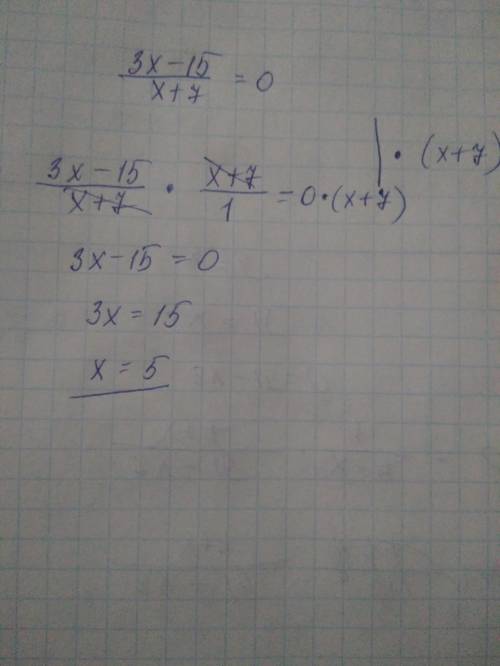 (3x-15)/(x+7) = 0
| · (x+7)
(3x-15)/(x+7) · (x+7)/1 = 0·(x+7)
3x-15 = 0
3x = 15
x = 5